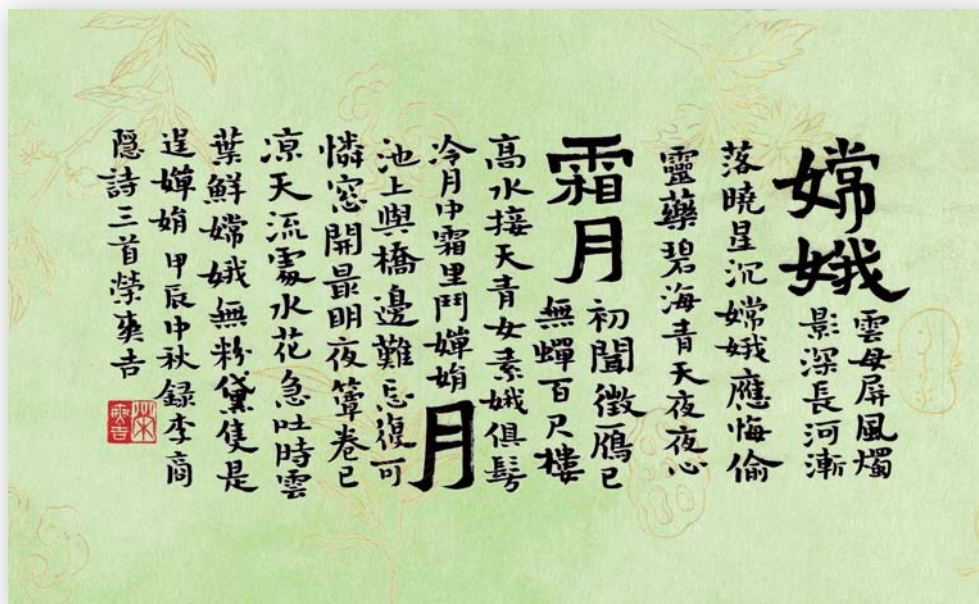 嫦娥
雲母屏風燭
影深長河漸
落曉星沉嫦娥應悔偷
靈藥碧海青天夜夜心
霜月
初聞徵鴈已
無蟬百尺樓
高水接天青女素娥俱
冷月中霜里鬥嬋娟
月
池上與橋邊難忘復可
憐窓開最明夜簟卷已
涼天流處水花急吐時雲
葉鮮嫦娥無粉黛隻是
逞嬋娟 甲辰中秋録李商
隱詩三首榮爽吉
榮
爽吉